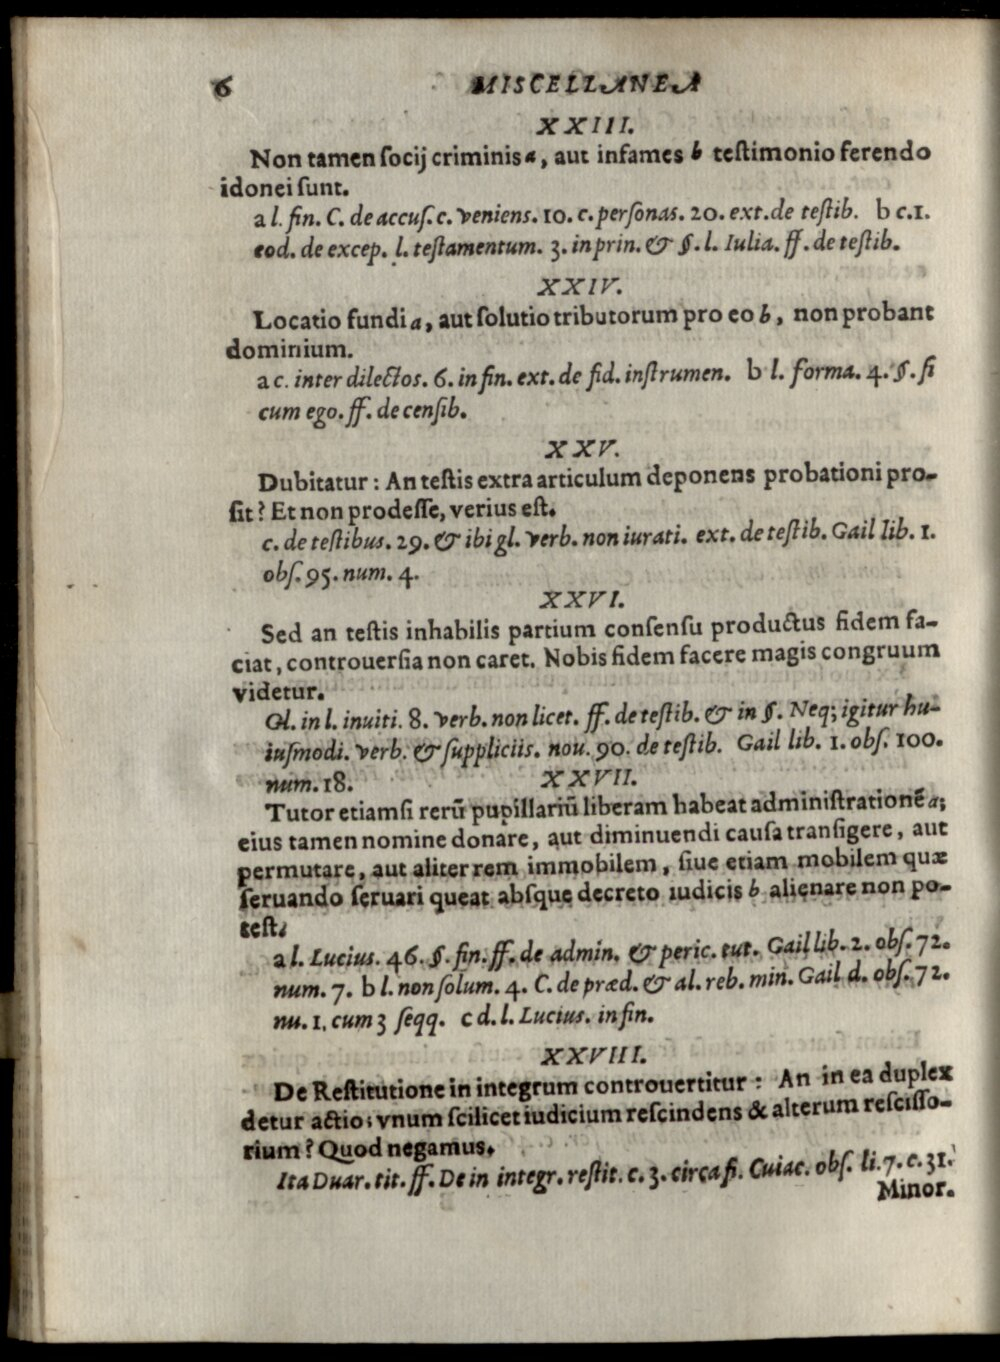 6 MISCELLANEA
XXIII.
Non tamen ſocij criminis a, aut infames b teſtimonio ferendo
idonei ſunt.
a l. fin. C. de accuſ. c. veniens. 10. c. perſonas. 20. ext. de teſtib. b c. 1.
eod. de excep. l. teſtamentum. 3. in prin. & §. l. Iulia. ff. de teſtib.
XXIV.
Locatio fundi a, aut ſolutio tributorum pro eo b, non probant
dominium.
a c. inter dilectos. 6. in fin. ext. de fid. inſtrumen. b l. forma. 4. §. ſi
cum ego. ff. de cenſib.
XXV.
Dubitatur: An teſtis extra articulum deponens probationi pro-
ſit? Et non prodeſſe, verius eſt.
c. de teſtibus. 29. & ibi gl. verb. non iurati. ext. de teſtib. Gail lib. 1.
obſ. 95. num. 4.
XXVI.
Sed an teſtis inhabilis partium conſenſu productus fidem fa-
ciat, controuerſia non caret. Nobis fidem facere magis congruum
videtur.
Gl. in l. inuiti. 8. verb. non licet. ff. de teſtib. & in §. Neq; igitur hu-
iuſmodi. verb. & ſuppliciis. nou. 90. de teſtib. Gail lib. 1. obſ. 100.
num. 18.
XXVII.
Tutor etiamſi rerū pupillariū liberam habeat adminiſtrationē a;
eius tamen nomine donare, aut diminuendi cauſa tranſigere, aut
permutare, aut aliter rem immobilem, ſiue etiam mobilem quæ
ſeruando ſeruari queat abſque decreto iudicis b alienare non po-
teſt.
a l. Lucius. 46. §. fin. ff. de admin. & peric. tut. Gail lib. 2. obſ. 72.
num. 7. b l. non ſolum. 4. C. de præd. & al. reb. min. Gail d. obſ. 72.
nu. 1. cum 3 ſeqq. c d. l. Lucius. in fin.
XXVIII.
De Reſtitutione in integrum controuertitur: An in ea duplex
detur actio; vnum ſcilicet iudicium reſcindens & alterum reſciſſo-
rium? Quod negamus.
Ita Duar. tit. ff. De in integr. reſtit. c. 3. circa fi. Cuiac. obſ. li. 7. c. 31.
Minor.